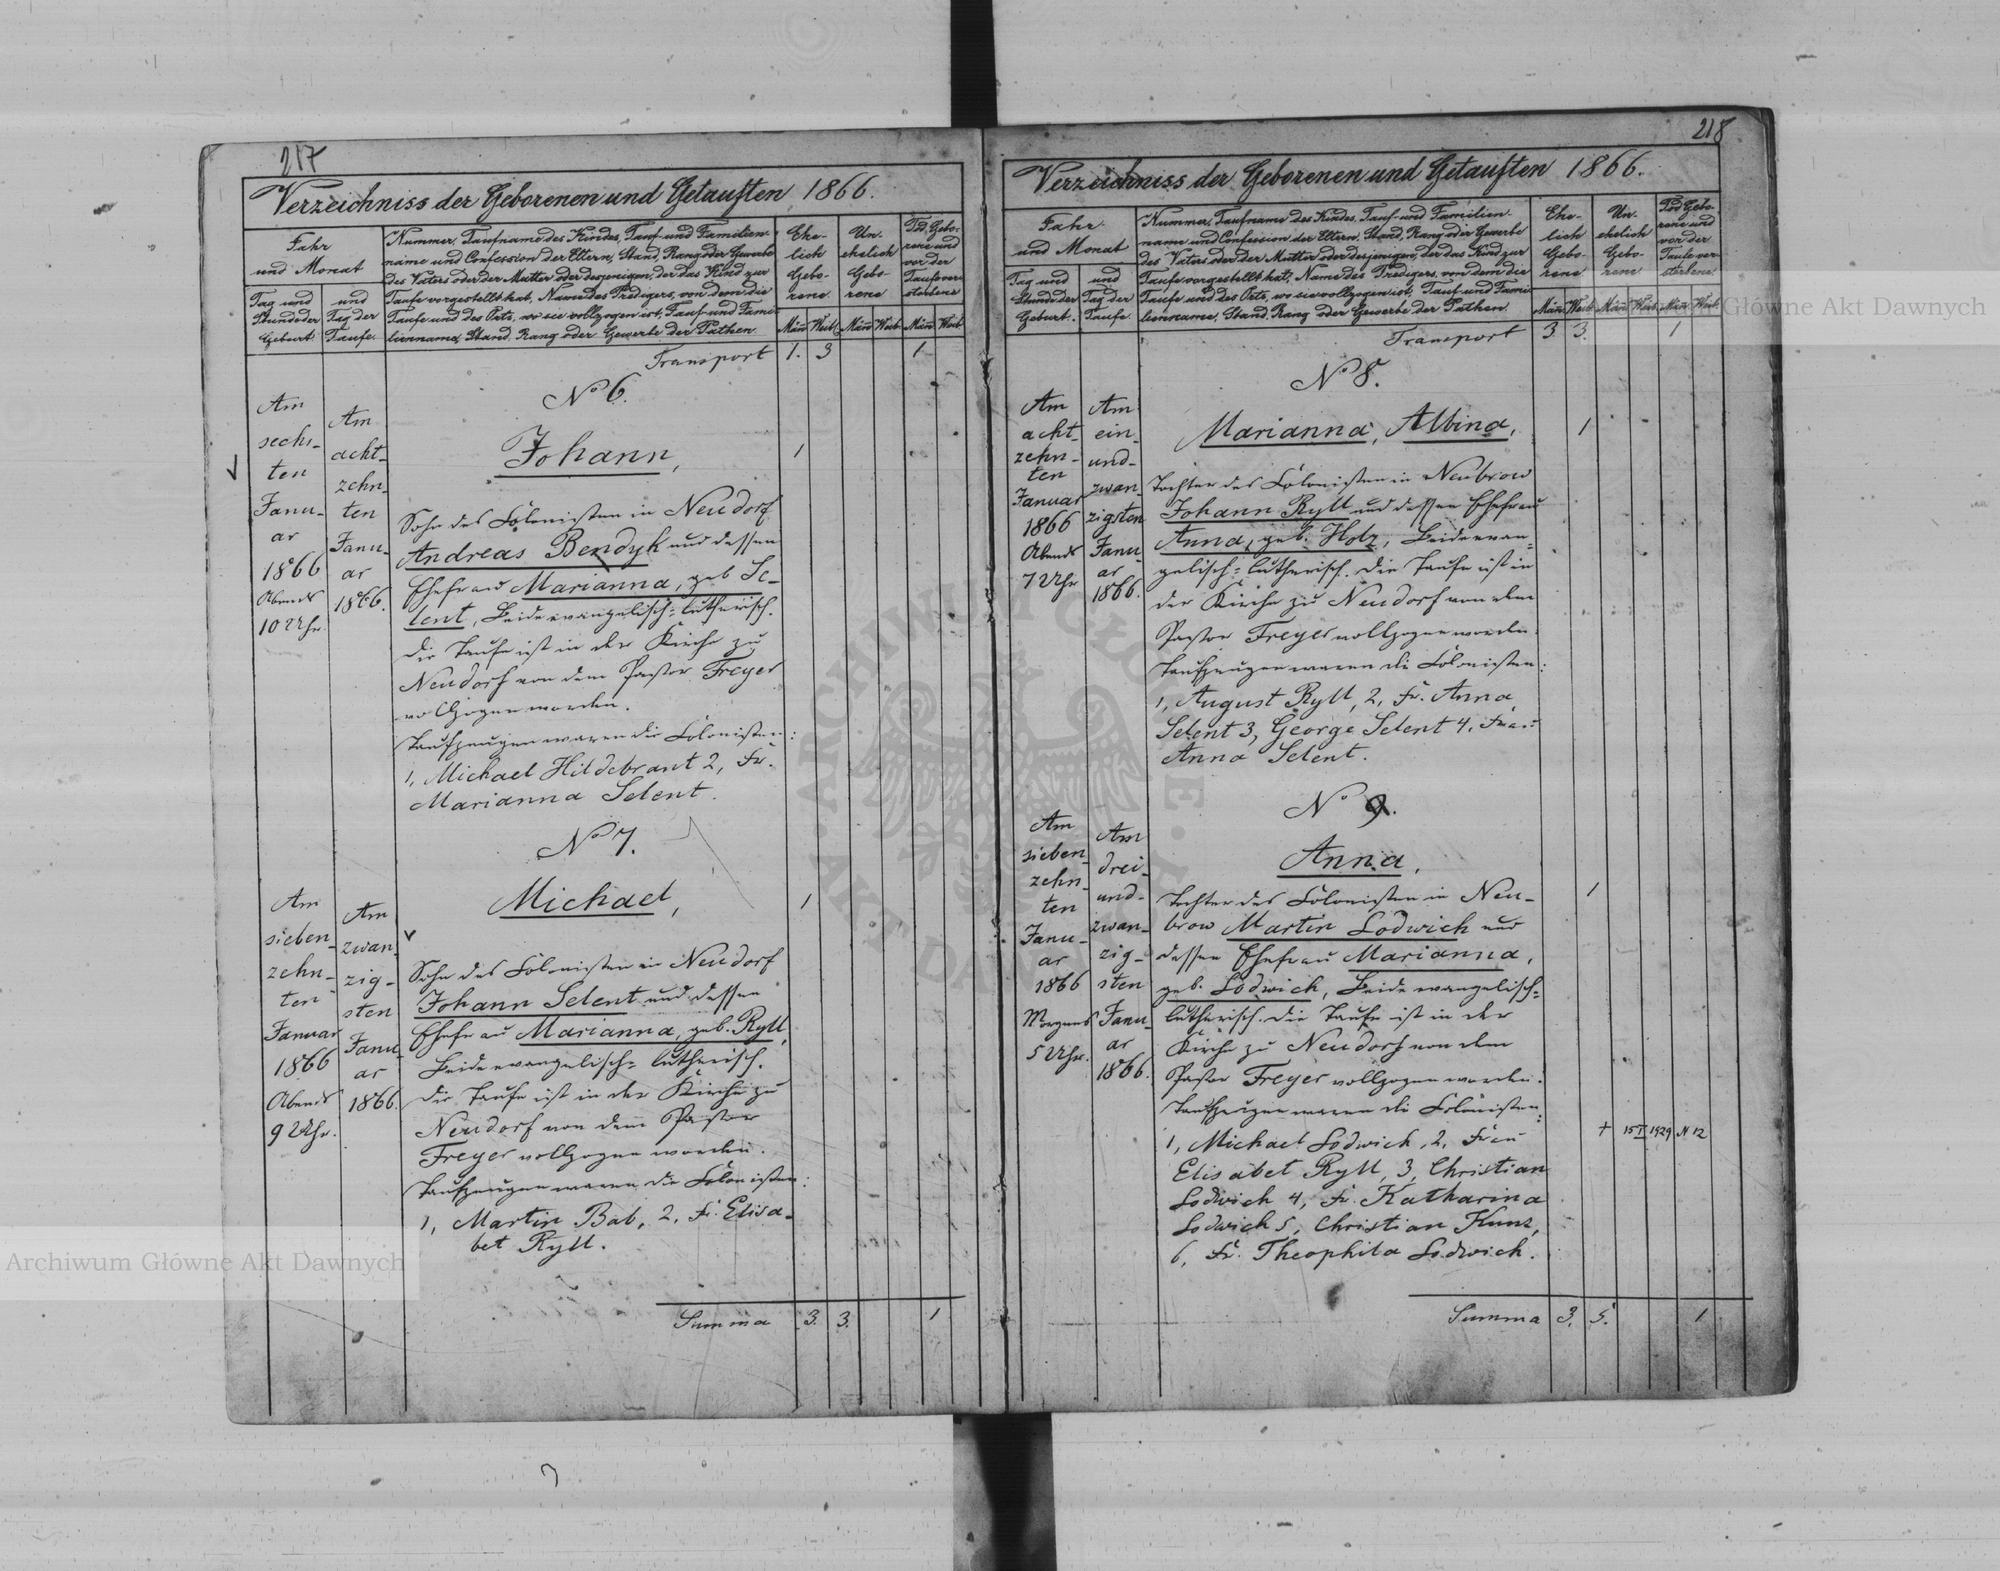 217
Verzeichniss der Geborenen und Getauften 1866.
Jahr
und Monat
Tag und
Stunde der
Geburt.
und
Tag der
Taufe.
Nummer, Taufname des Kindes, Tauf- und Familien-
name und Confession der Eltern, Stand, Rang oder Gewerbe
des Vaters oder der Mutter oder desjenigen, der das Kind zur
Taufe vorgestellt hat, Name des Predigers, von dem die
Taufe und des Orts, wo sie vollzogen ist, Tauf- und Fami-
lienname, Stand, Rang oder Gewerbe der Pathen.
Ehe-
lich
Gebo-
rene
Un-
ehelich
Gebo-
rene
Tod Gebo-
rene und
vor der
Taufe ver-
storbene
Män Weib Män Weib Män Weib
Transport 1. 3 1
Am
sechs-
ten
Janu-
ar
1866
Abends
10 Uhr.
Am
acht-
zehn-
ten
Janu-
ar
1866.
No 6.
Johann, 1
Sohn des Colonisten in Neudorf
Andreas Bendyk und dessen
Ehefrau Marianna, geb. Se-
lent, Beide evangelisch-lutherisch.
Die Taufe ist in der Kirche zu
Neudorf von dem Pastor Freyer
vollzogen worden.
Taufzeugen waren die Colonisten:
1, Michael Hildebrant 2, Fr.
Marianna Selent.
Am
sieben-
zehn-
ten
Januar
1866
Abends
9 Uhr.
Am
zwan-
zig-
sten
Janu-
ar
1866.
No 7.
Michael, 1
Sohn des Colonisten in Neudorf
Johann Selent und dessen
Ehefrau Marianna, geb. Ryll,
Beide evangelisch-lutherisch.
Die Taufe ist in der Kirche zu
Neudorf von dem Pastor
Freyer vollzogen worden.
Taufzeugen waren die Colonisten:
1, Martin Bab, 2, Fr. Elisa-
bet Ryll.
Summa 3. 3. 1
218
Verzeichniss der Geborenen und Getauften 1866.
Jahr
und Monat
Tag und
Stunde der
Geburt.
und
Tag der
Taufe
Nummer, Taufname des Kindes, Tauf- und Familien-
name und Confession der Eltern, Stand, Rang oder Gewerbe
des Vaters oder der Mutter oder desjenigen, der das Kind zur
Taufe vorgestellt hat, Name des Predigers, von dem die
Taufe und des Orts, wo sie vollzogen ist, Tauf- und Fami-
lienname, Stand, Rang oder Gewerbe der Pathen.
Ehe-
lich
Gebo-
rene
Un-
ehelich
Gebo-
rene
Tod Gebo-
rene und
vor der
Taufe ver-
storbene
Män Weib Män Weib Män Weib
Transport 3. 3. 1
Am
acht-
zehn-
ten
Januar
1866
Abends
7 Uhr
Am
ein-
und-
zwan-
zigsten
Janu-
ar
1866.
No 8.
Marianna, Albina, 1
Tochter des Colonisten in Neubrow
Johann Ryll und dessen Ehefrau
Anna, geb. Holz, Beide evan-
gelisch-lutherisch. Die Taufe ist in
der Kirche zu Neudorf von dem
Pastor Freyer vollzogen worden.
Taufzeugen waren die Colonisten:
1, August Ryll, 2, Fr. Anna
Selent 3, George Selent 4, Frau
Anna Selent.
Am
sieben-
zehn-
ten
Janu-
ar
1866
Morgens
5 Uhr.
Am
drei-
und-
zwan-
zig-
sten
Janu-
ar
1866.
No 9.
Anna, 1
Tochter des Colonisten in Neu-
brow Martin Lodwich und
dessen Ehefrau Marianna,
geb. Lodwich, Beide evangelisch-
lutherisch. Die Taufe ist in der
Kirche zu Neudorf von dem
Pastor Freyer vollzogen worden.
Taufzeugen waren die Colonisten:
1, Michael Lodwich, 2, Frau
Elisabet Ryll, 3, Christian
Lodwich 4, Fr. Katharina
Lodwich 5, Christian Kunz,
6, Fr. Theophila Lodwich.
+ 15 I 1929 N 12
Summa 3. 5. 1
Główne Akt Dawnych
Archiwum Główne Akt Dawnych